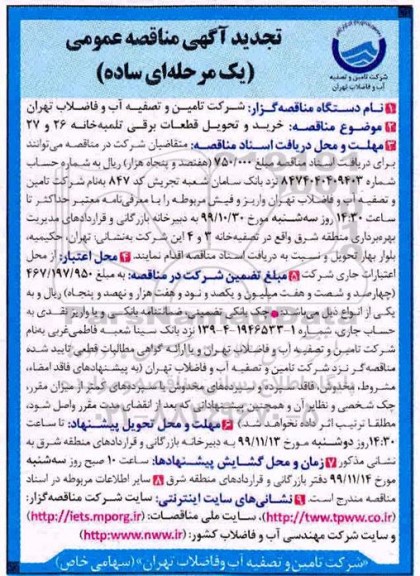 تجدید آگهی مناقصه عمومی
(یک مرحله‌ای ساده)
شرکت تامین و تصفیه
آب و فاضلاب تهران
1 نام دستگاه مناقصه‌گزار: شرکت تامین و تصفیه آب و فاضلاب تهران
2 موضوع مناقصه: خرید و تحویل قطعات برقی تلمبه‌خانه ۲۶ و ۲۷
3 مهلت و محل دریافت اسناد مناقصه: متقاضیان شرکت در مناقصه می‌توانند
برای دریافت اسناد مناقصه مبلغ ۷۵۰/۰۰۰ (هفتصد و پنجاه هزار) ریال به شماره حساب
شماره ۸۴۷۴۰۴۰۴۰۹۴۰۳ نزد بانک سامان شعبه تجریش کد ۸۴۷ به‌نام شرکت تامین
و تصفیه آب و فاضلاب تهران واریز و فیش مربوطه را با معرفی‌نامه معتبر حداکثر تا
ساعت ۱۴:۳۰ روز سه‌شنبه مورخ ۹۹/۱۰/۳۰ به دبیرخانه بازرگانی و قراردادهای مدیریت
بهره‌برداری منطقه شرق واقع در تصفیه‌خانه ۳ و ۴ این شرکت به‌نشانی: تهران، حکیمیه،
بلوار بهار تحویل و نسبت به دریافت اسناد مناقصه اقدام نمایند. 4 محل اعتبار: از محل
اعتبارات جاری شرکت 5 مبلغ تضمین شرکت در مناقصه: به مبلغ ۴۶۷/۱۹۷/۹۵۰
(چهارصد و شصت و هفت میلیون و یکصد و نود و هفت هزار و نهصد و پنجاه) ریال و به
یکی از انواع ذیل می‌باشد: ● چک بانکی تضمینی، ضمانتنامه بانکی و یا واریز نقدی به
حساب جاری شماره ۱-۱۹۴۶۵۳۳-۴-۱۳۹ نزد بانک سینا شعبه فاطمی غربی به‌نام
شرکت تامین و تصفیه آب و فاضلاب تهران و یا ارائه گواهی مطالبات قطعی تایید شده
مناقصه‌گر نزد شرکت تامین و تصفیه آب و فاضلاب تهران (به پیشنهادهای فاقد امضاء،
مشروط، مخدوش، فاقد سپرده و سپرده‌های مخدوش یا سپرده‌های کمتر از میزان مقرر،
چک شخصی و نظایر آن و همچنین پیشنهاداتی که بعد از انقضای مدت مقرر واصل شود،
مطلقا ترتیب اثر داده نخواهد شد.) 6 مهلت و محل تحویل پیشنهاد: تا ساعت
۱۴:۳۰ روز دوشنبه مورخ ۹۹/۱۱/۱۳ به دبیرخانه بازرگانی و قراردادهای منطقه شرق به
نشانی مذکور 7 زمان و محل گشایش پیشنهادها: ساعت ۱۰ صبح روز سه‌شنبه
مورخ ۹۹/۱۱/۱۴ دفتر بازرگانی و قراردادهای منطقه شرق 8 سایر اطلاعات مربوطه در اسناد
مناقصه مندرج است. 9 نشانی‌های سایت اینترنتی: سایت شرکت مناقصه‌گزار:
(http://tww.tpww.co.ir)، سایت ملی مناقصات: (http://iets.mporg.ir)
و سایت شرکت مهندسی آب و فاضلاب کشور: (http:www.nww.ir)
«شرکت تامین و تصفیه آب وفاضلاب تهران» (سهامی خاص)